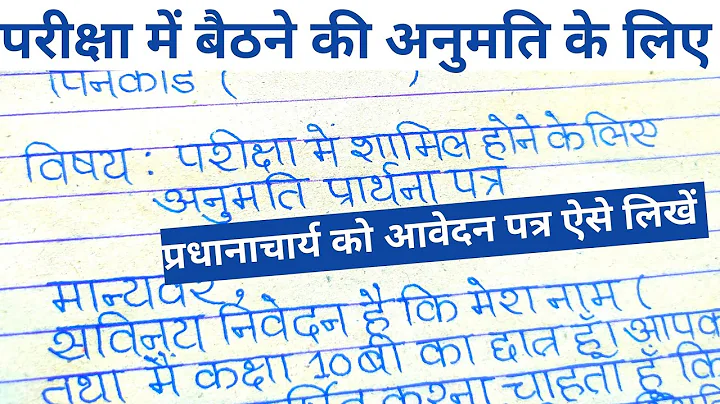 परीक्षा में बैठने की अनुमति के लिए
पिनकोड ( )
विषय : परीक्षा में शामिल होने के लिए
अनुमति प्रार्थना पत्र
प्रधानाचार्य को आवेदन पत्र ऐसे लिखें
मान्यवर,
सविनय निवेदन है कि मेरा नाम (
तथा मैं कक्षा 10बी का छात्र हूँ। आपक
करना चाहता हूँ कि